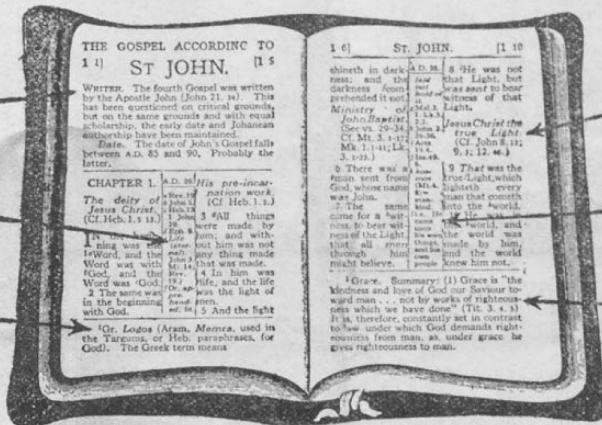 THE GOSPEL ACCORDING TO
1 1] ST JOHN. [1 5
WRITER. The fourth Gospel was written
by the Apostle John (John 21. 24). This
has been questioned on critical grounds,
but on the same grounds and with equal
scholarship, the early date and Johanean
authorship have been maintained.
Date. The date of John's Gospel falls
between A.D. 85 and 90. Probably the
latter.
CHAPTER 1.
The deity of
Jesus Christ.
(Cf. Heb. 1. 5 13.)
IN the begin-
ning was the
Word, and the
Word was with
God, and the
Word was God.
2 The same was
in the beginning
with God.
A.D. 26.
Life
John 3.
His pre-incar-
nation work.
(Cf. Heb. 1. 2.)
3 All things
were made by
him; and with-
out him was not
any thing made
that was made.
4 In him was
life, and the life
was the light of
men.
5 And the light
Gr. Logos (Aram. Memra, used in
the Targums, or Heb. paraphrases, for
God). The Greek term means
1 6] ST. JOHN. [1 10
shineth in dark-
ness; and the
darkness com-
prehended it not.
Ministry of
John Baptist.
(See vs. 29-34.
Cf. Mt. 3. 1-17;
Mk. 1. 1-11; Lk.
3. 1-23.)
6 There was a
man sent from
God, whose name
was John.
7 The same
came for a wit-
ness, to bear wit-
ness of the Light,
that all men
through him
might believe.
A.D. 26.
own
people.
8 He was not
that Light, but
was sent to bear
witness of that
Light.
Jesus Christ the
true Light.
(Cf. John 8. 12;
9. 5; 12. 46.)
9 That was the
true Light, which
lighteth every
man that cometh
into the world.
He was in
the world, and
the world was
made by him,
and the world
knew him not.
Grace. Summary: (1) Grace is "the
kindness and love of God our Saviour to-
ward man . . . not by works of righteous-
ness which we have done" (Tit. 3. 4, 5)
It is, therefore, constantly set in contrast
to law, under which God demands right-
eousness from man, as, under grace he
gives righteousness to man.